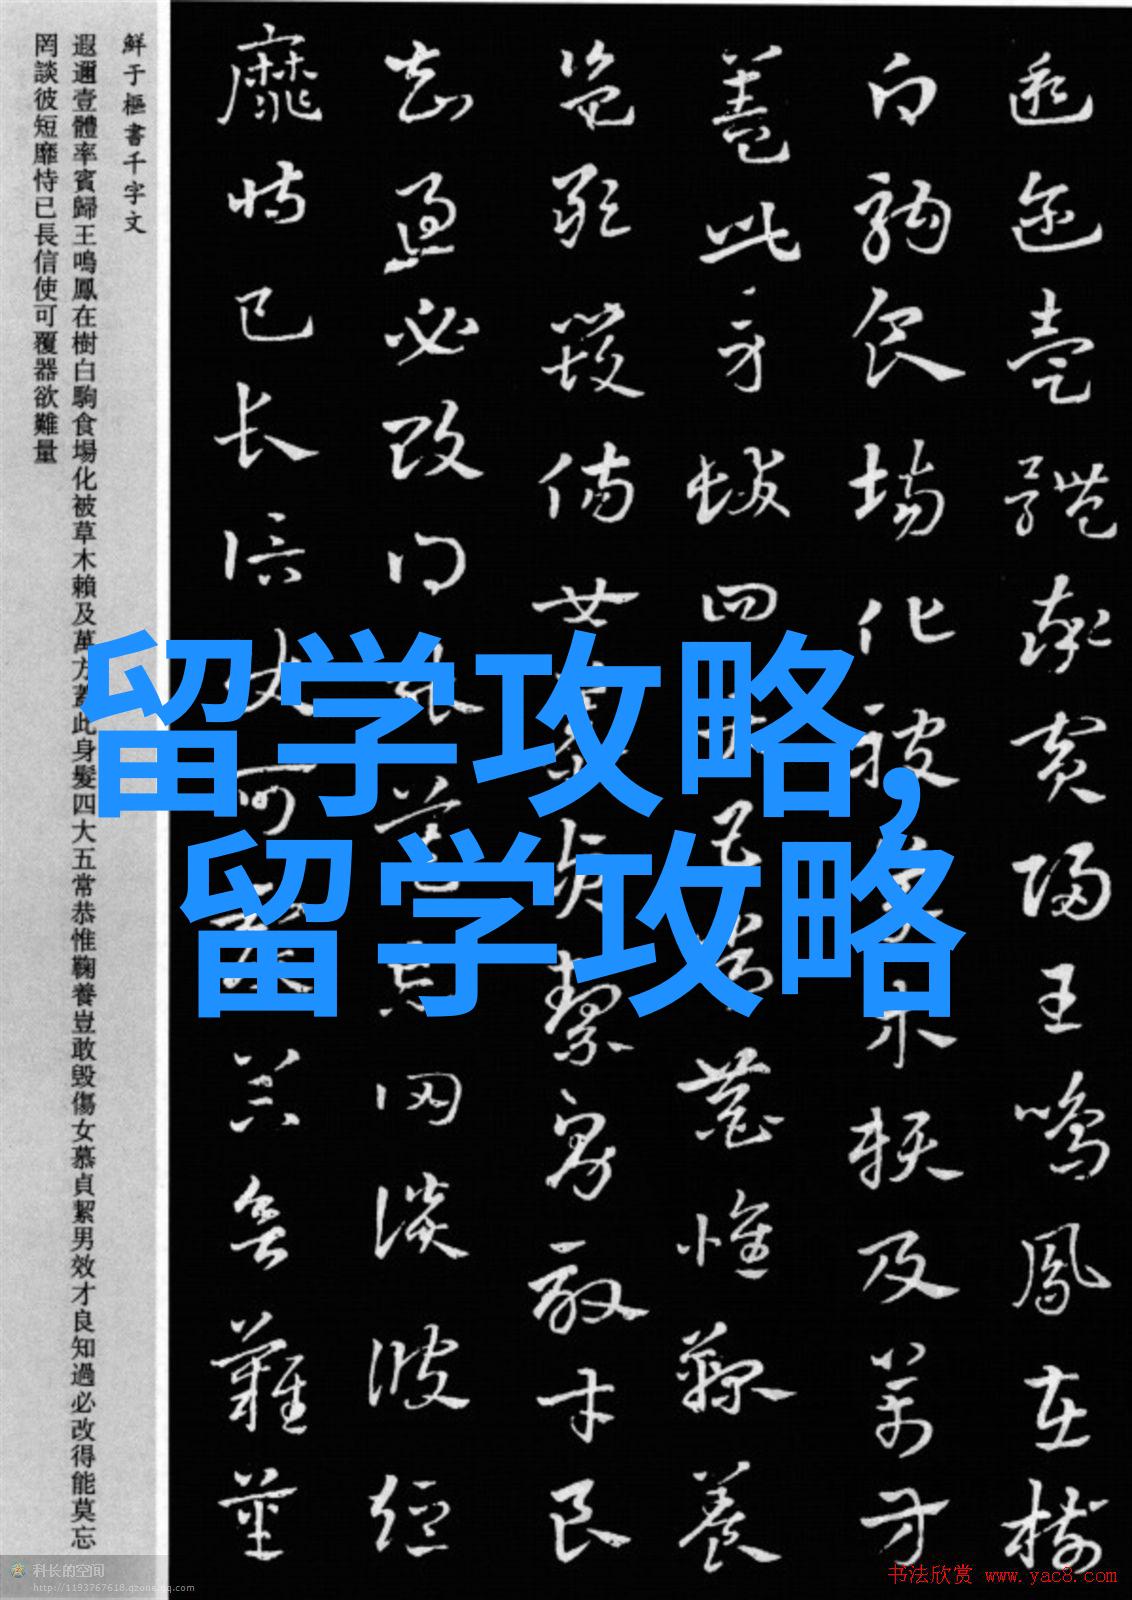 留学攻略,
留学攻略
遐邇壹體率賓歸王鳴鳳在樹
白駒食場化被
木賴及萬方
蓋此身髮四
恭惟鞠養
豈敢毀傷女
貞絜男效才良
知過必改得
忘罔談彼短
靡恃已長信使可覆器欲難量
鮮于樞書千字文
遐邇壹體率賓歸王鳴鳳在樹白駒食場化被草木賴及萬方蓋此身髮四大五常恭惟鞠養豈敢毀傷女慕貞絜男效才良知過必改得能莫忘
罔談彼短靡恃已長信使可覆器欲難量
科长的空间
http://1193767618.qzone.qq.com
书法欣赏 www.yac8.com